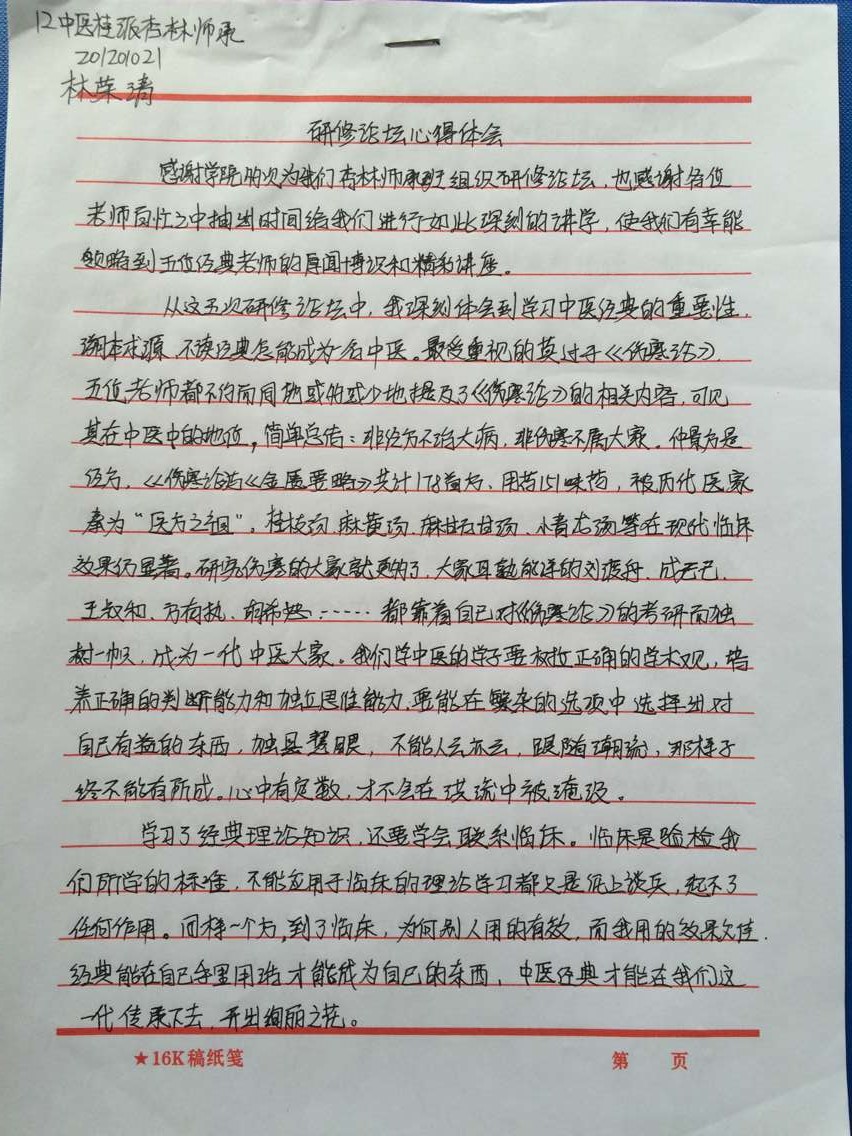 12中医桂派杏林师承
201201021
林荣清
研修论坛心得体会
感谢学院的次为我们杏林师承班组织研修论坛，也感谢各位
老师百忙之中抽出时间给我们进行如此深刻的讲学，使我们有幸能
领略到五位经典老师的厚闻博识和精彩讲座。
从这五次研修论坛中，我深刻体会到学习中医经典的重要性，
溯本求源，不读经典怎能成为一名中医。最受重视的莫过于《伤寒论》，
五位老师都不约而同地或多或少地提及了《伤寒论》的相关内容，可见
其在中医中的地位，简单总结：非经方不治大病，非伤寒不属大家。仲景方是
经方，《伤寒论与《金匮要略》共计178首方，用药151味药，被历代医家
奉为“医方之祖”，桂枝汤、麻黄汤、麻杏石甘汤、小青龙汤等在现代临床
效果仍显著。研究伤寒的大家就更多了，大家耳熟能详的刘渡舟、成无己、
王叔和、方有执、胡希恕……都靠着自己对《伤寒论》的考研而独
树一帜，成为一代中医大家。我们学中医的学子要树立正确的学术观，培
养正确的判断能力和独立思维能力，要能在繁杂的选项中选择出对
自己有益的东西，独具慧眼，不能人云亦云，跟随潮流，那样子
终不能有所成。心中有定数，才不会在洪流中被淹没。
学习了经典理论知识，还要学会联系临床。临床是验检我
们所学的标准，不能应用于临床的理论学习都只是纸上谈兵，起不了
任何作用。同样一个方，到了临床，为何别人用的有效，而我用的效果欠佳。
经典能在自己手里用活才能成为自己的东西，中医经典才能在我们这
一代传承下去，开出绚丽之花。
★16K稿纸笺 第 页